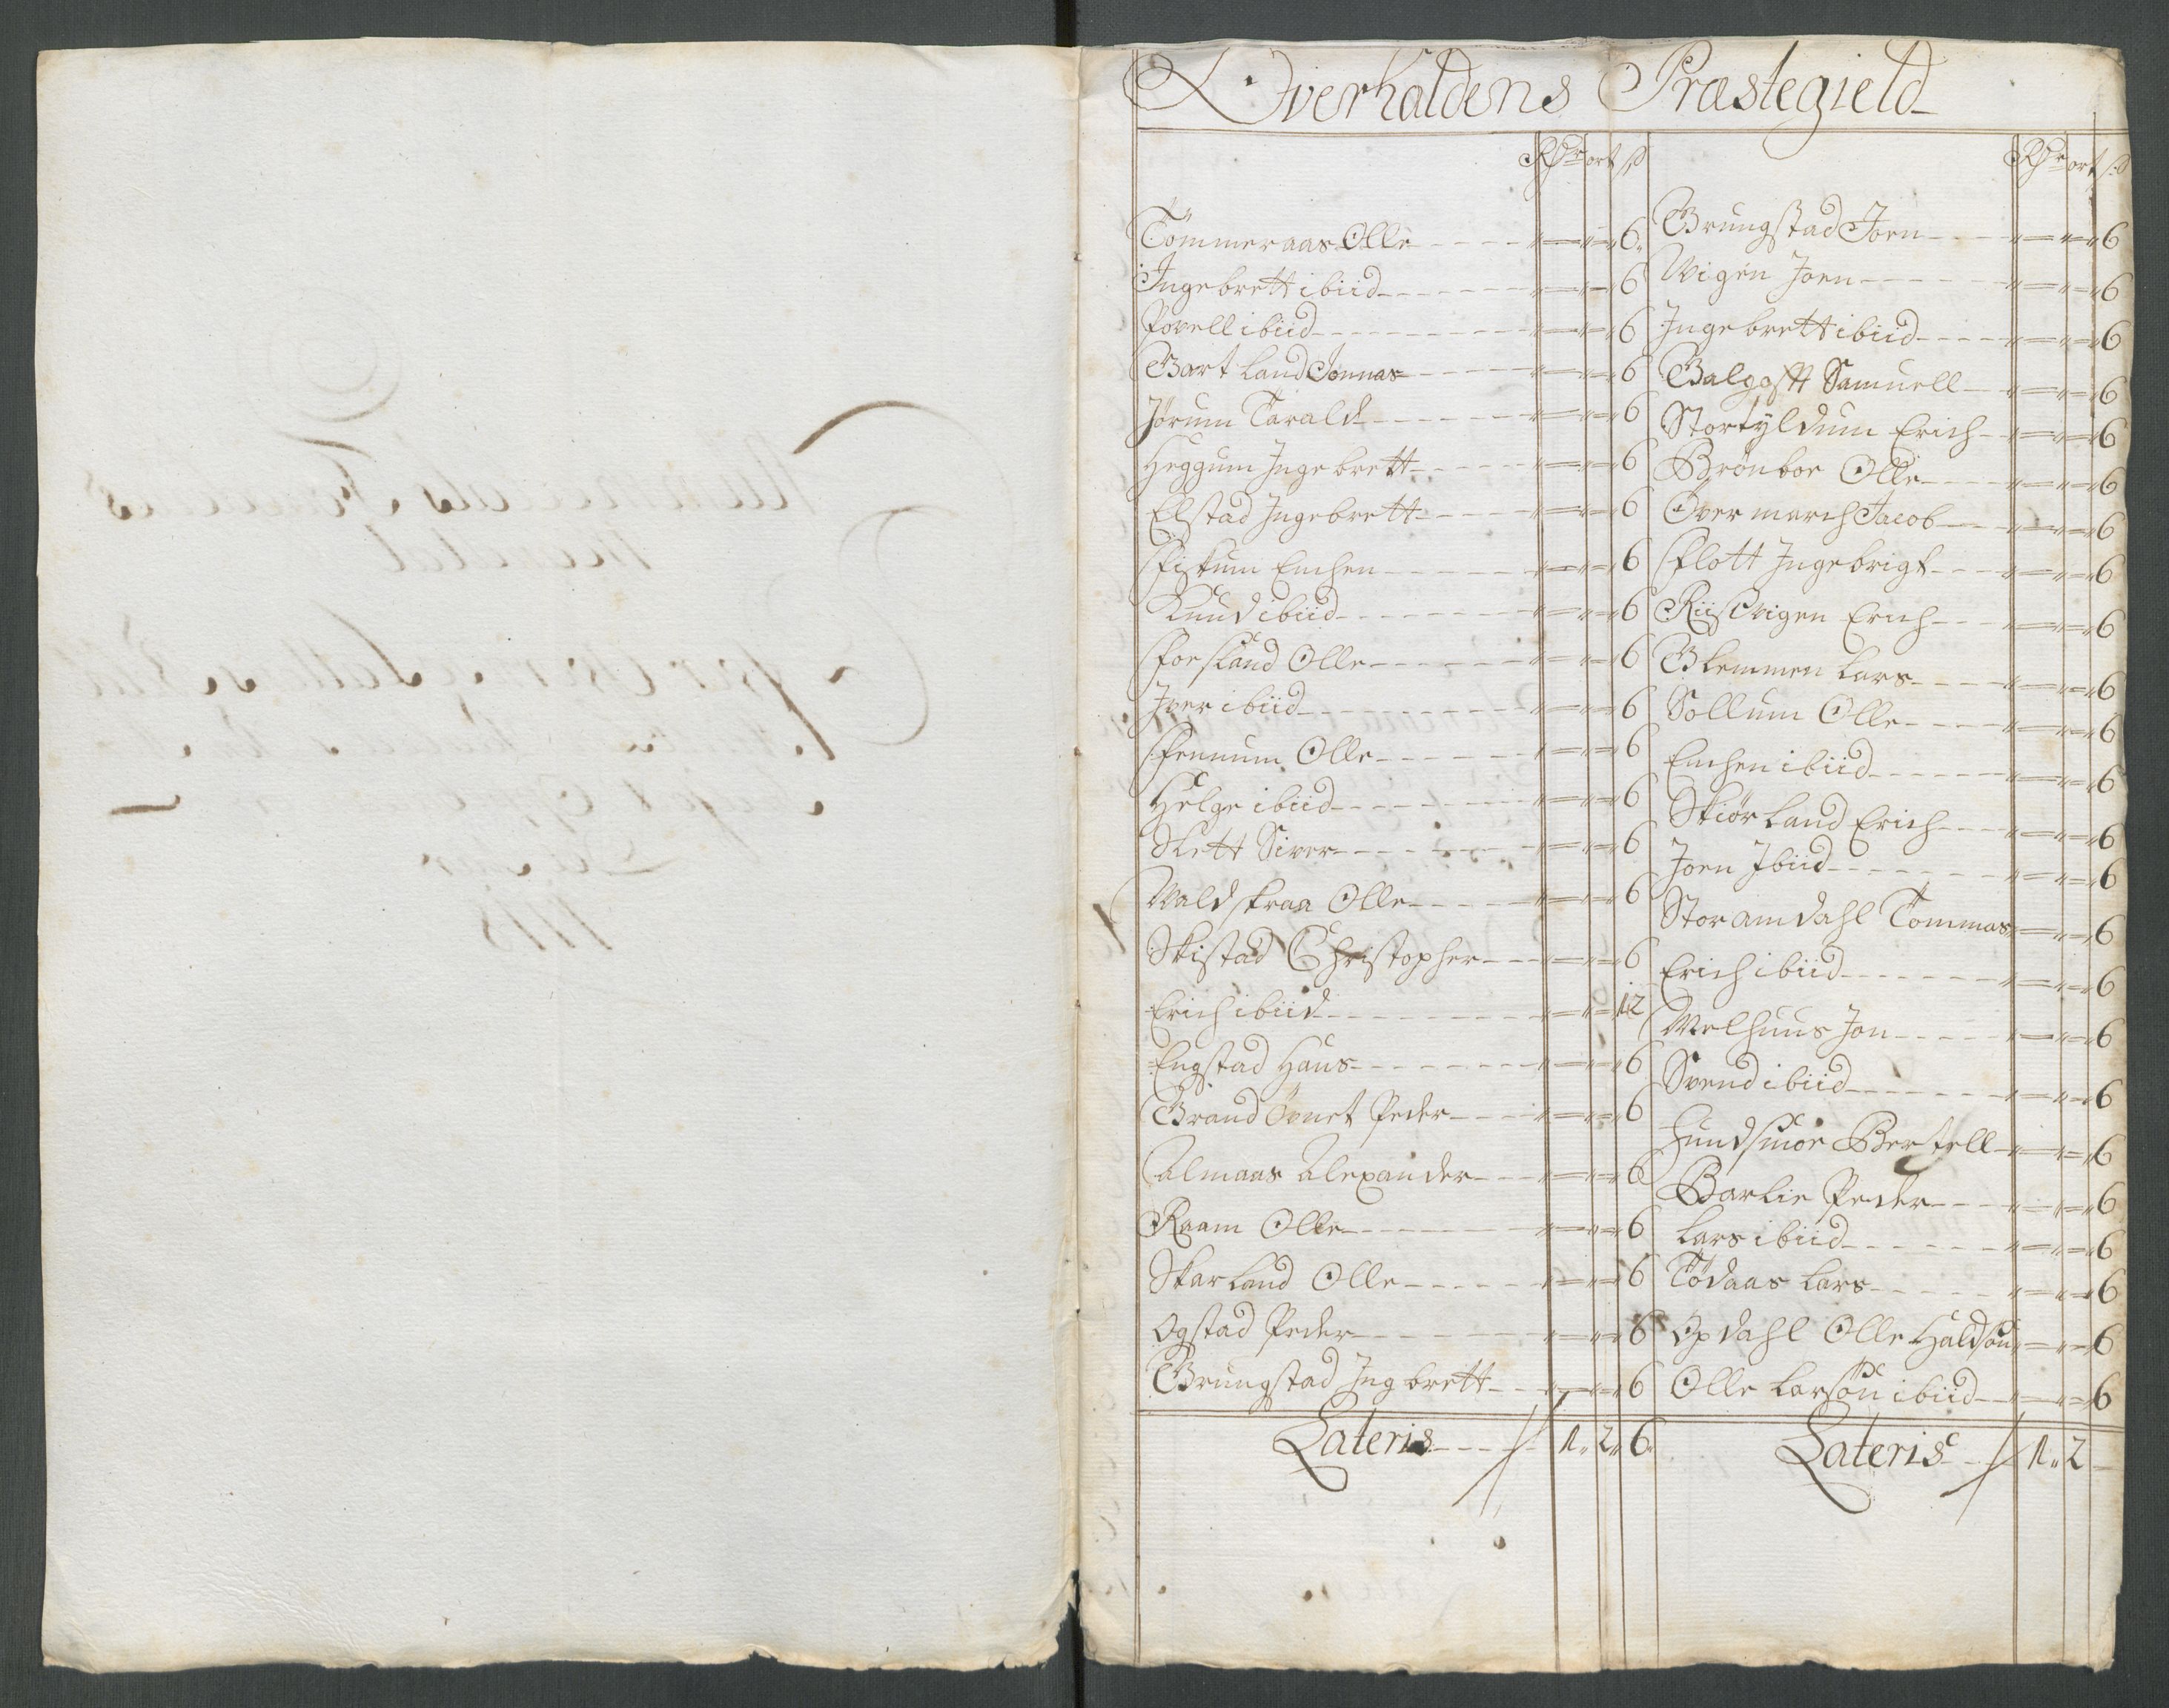 Overhaldens Præstegield
Rdr ort s
Tömmeraas Olle - - - - 6
Ingebrett ibiid - - - - 6
Povell ibiid - - - - 6
Bartland Jonnas - - - - 6
Jörum Tarald - - - - 6
Heggum Ingebrett - - - - 6
Elstad Ingebrett - - - - 6
Fiskum Enchen - - - - 6
Knud ibiid - - - - 6
Forsland Olle - - - - 6
Iver ibiid - - - - 6
Femmum Olle - - - - 6
Helge ibiid - - - - 6
Slett Siver - - - - 6
Valdskraa Olle - - - - 6
Skistad Christopher - - - 6
Erich ibiid - - - - 12
Engstad Hans - - - - 6
Brand Övnet Peder - - - 6
Almaas Alexander - - - 6
Raam Olle - - - - 6
Skarland Olle - - - - 6
Ogstad Peder - - - - 6
Grungstad Ingbrett - - - 6
Lateris - - - - 1 " 2 " 6
Rdr ort s
Grungstad Joen - - - - 6
Vigen Joen - - - - 6
Ingebrett ibiid - - - - 6
Galgoftt Samuell - - - 6
Stortyldum Erich - - - 6
Brönboe Olle - - - - 6
Övermarch Jacob - - - 6
Flott Ingebrigt - - - 6
Riisvigen Erich - - - 6
Glemmen Lars - - - - 6
Sollum Olle - - - - 6
Enchen ibiid - - - - 6
Skiörland Erich - - - 6
Joen Ibiid - - - - 6
Storamdahl Tommas 6
Erich ibiid - - - - 6
Melhuus Jon - - - - 6
Svend ibiid - - - - 6
Hundsmoe Bertell - - 6
Barlie Peder - - - - 6
Lars ibiid - - - - 6
Tödaas Lars - - - - 6
Opdahl Olle Haldsön 6
Olle Larsön ibiid - - 6
Lateris - - 1 " 2 -